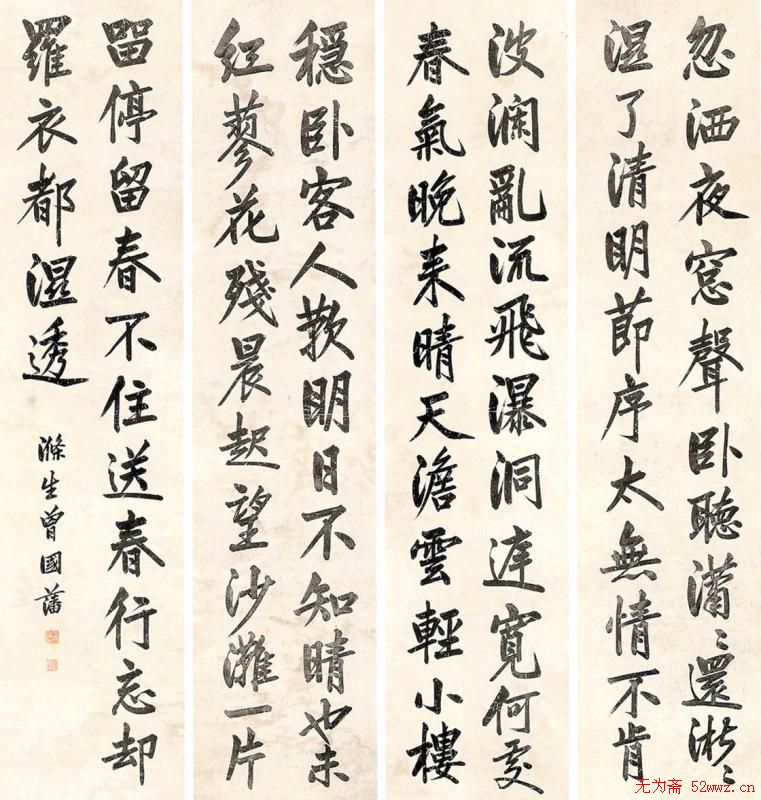 忽洒夜窓聲卧聽瀟〻還淅〻
湿了清明莭序太無情不肯
波瀾亂流飛瀑洞庭寬何處
春氣晚来晴天澹雲輕小樓
穩卧客人歎明日不知晴也未
紅蓼花殘晨起望沙灘一片
畱停留春不住送春行忘却
羅衣都湿透
滌生曾國藩
无为斋 52wwz.cn